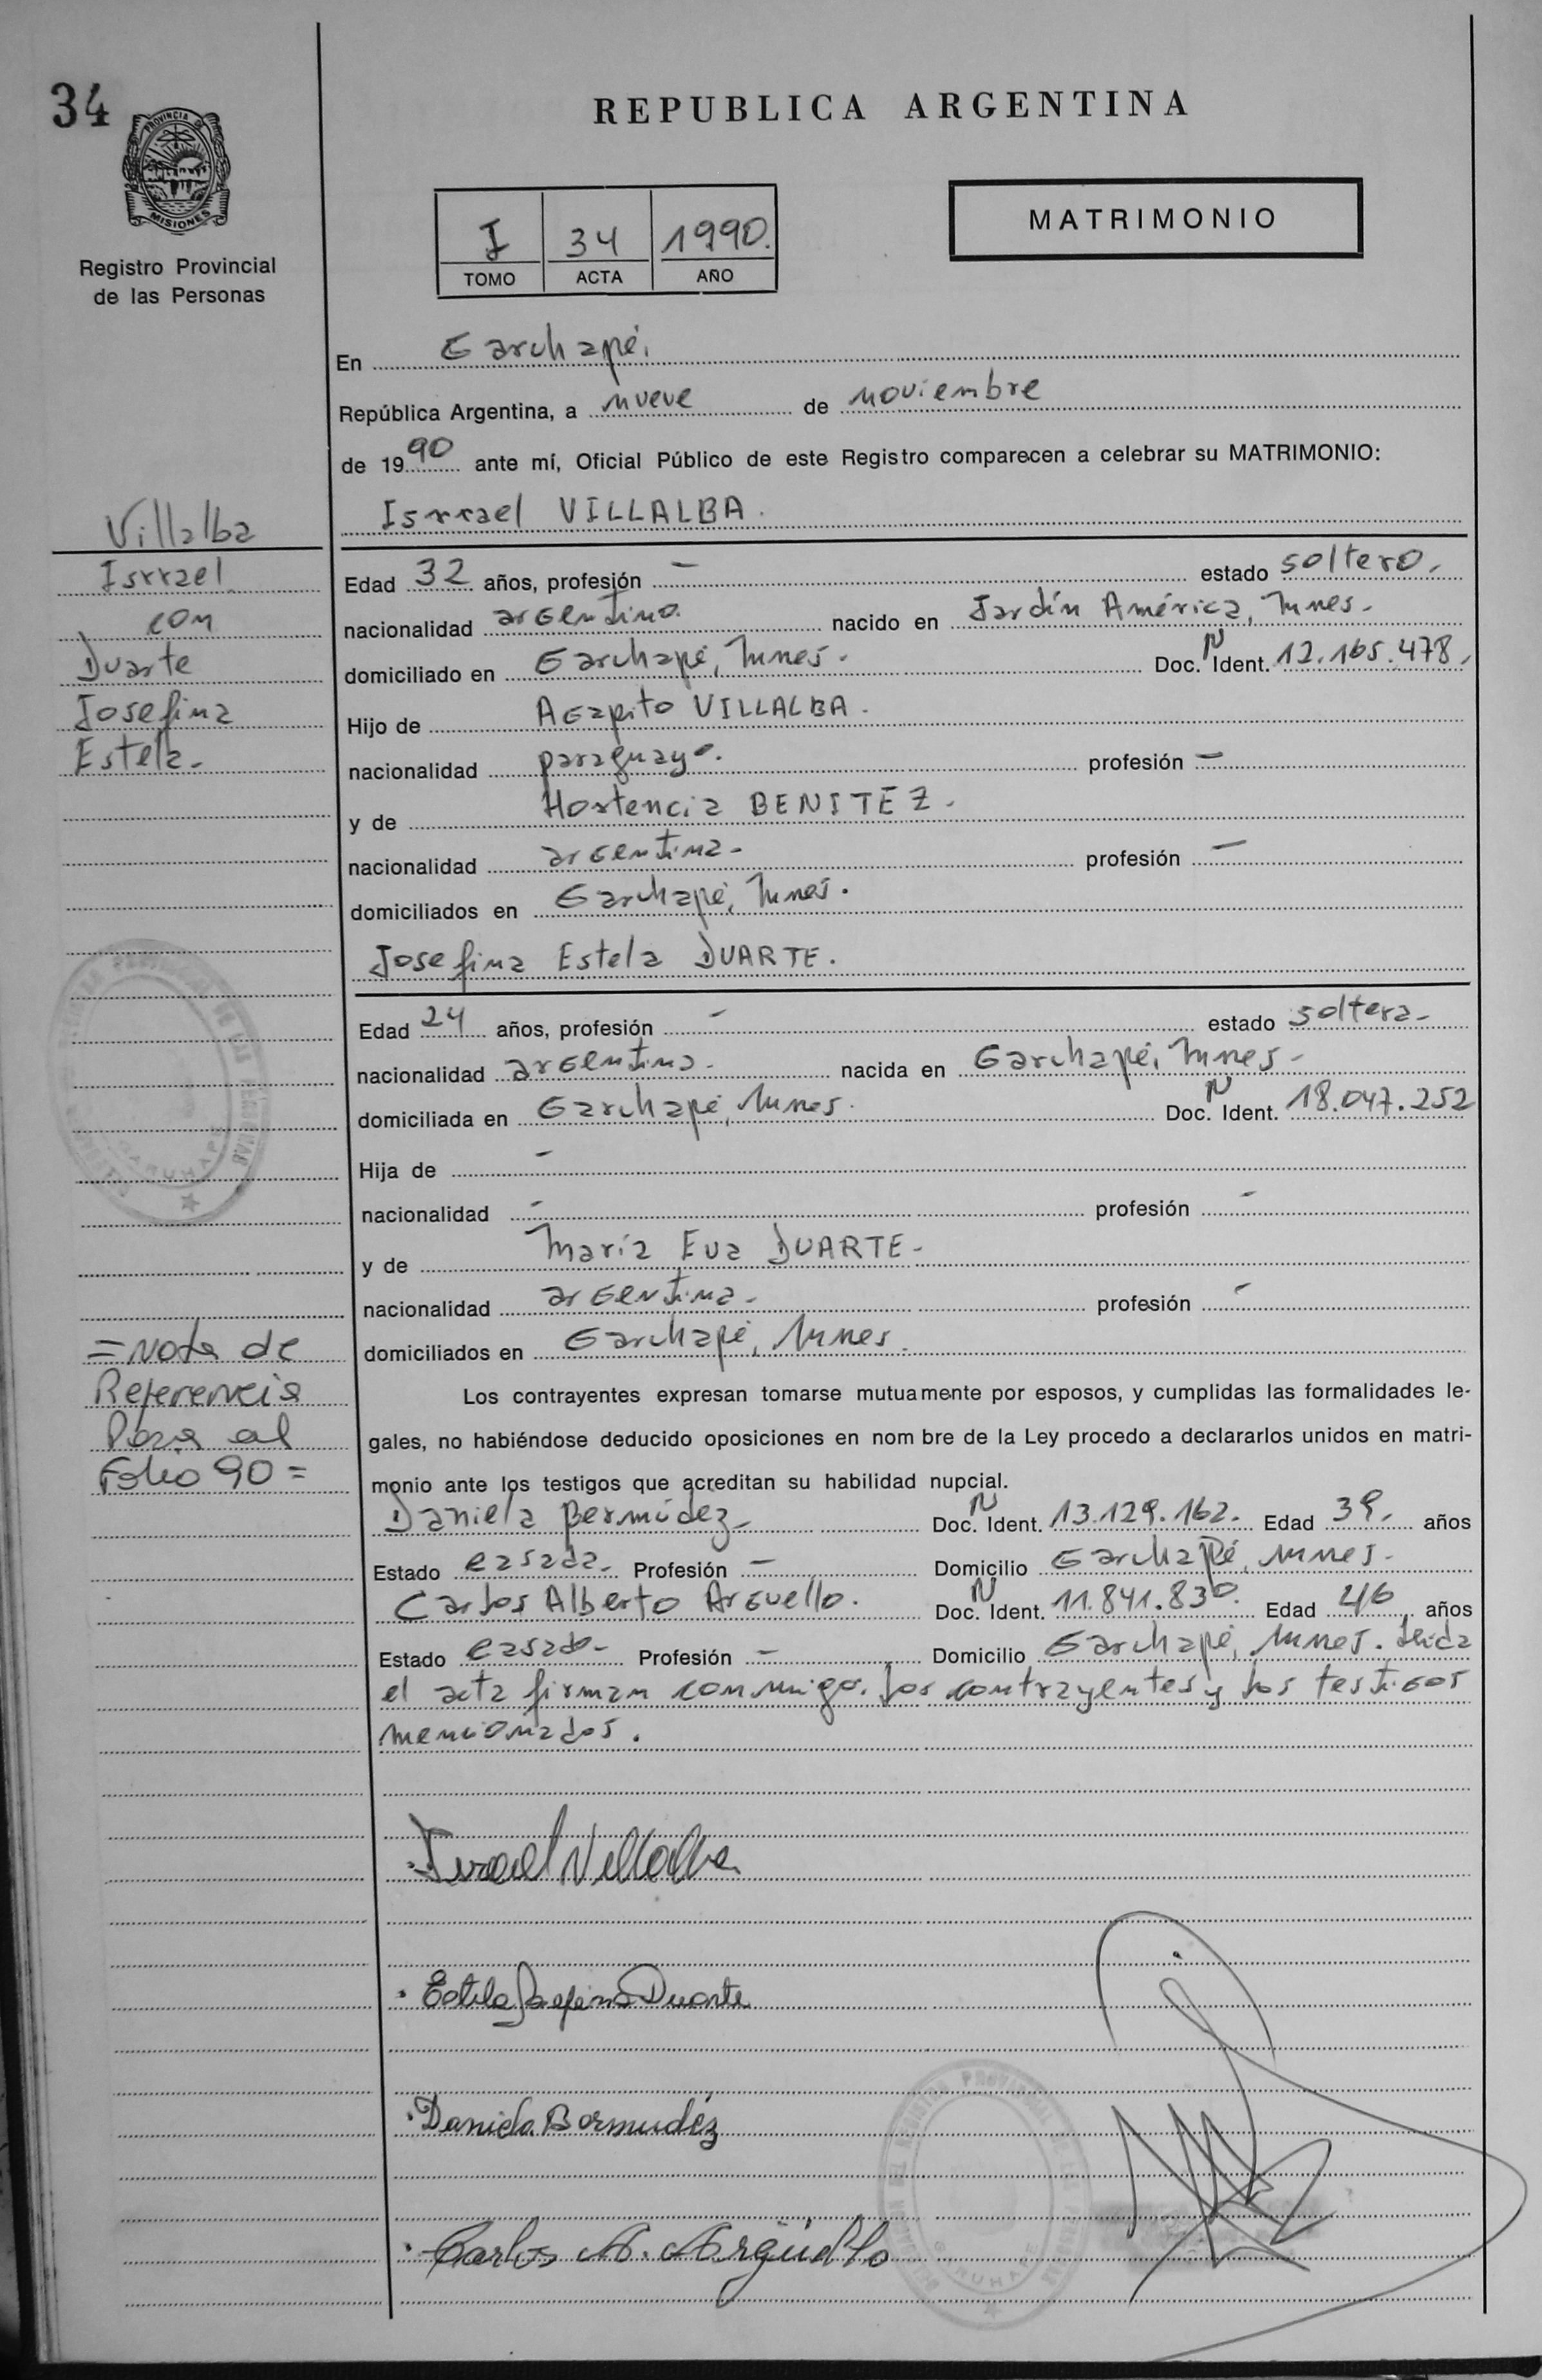 34
PROVINCIA DE
MISIONES
Registro Provincial
de las Personas
REPUBLICA ARGENTINA
I 34 1990.
TOMO ACTA AÑO
MATRIMONIO
En Garuhapé,
República Argentina, a nueve de noviembre
de 1990 ante mí, Oficial Público de este Registro comparecen a celebrar su MATRIMONIO:
Isrrael VILLALBA.
Villalba
Isrrael
con
Duarte
Josefina
Estela-
Edad 32 años, profesión - estado soltero.
nacionalidad argentino. nacido en Jardín América, Mnes-
domiciliado en Garuhapé, Mnes. Doc. N Ident. 12.165.478.
Hijo de Agapito VILLALBA.
nacionalidad paraguayo. profesión -
y de Hortencia BENITEZ.
nacionalidad argentina- profesión -
domiciliados en Garuhapé, Mnes.
Josefina Estela DUARTE.
Edad 24 años, profesión - estado soltera-
nacionalidad argentina. nacida en Garuhapé, Mnes-
domiciliada en Garuhapé, Mnes. Doc. N Ident. 18.047.252
Hija de -
nacionalidad - profesión -
y de María Eva DUARTE-
nacionalidad argentina- profesión -
domiciliados en Garuhapé, Mnes.
=Nota de
Referencia
Pasa al
Folio 90=
Los contrayentes expresan tomarse mutuamente por esposos, y cumplidas las formalidades le-
gales, no habiéndose deducido oposiciones en nom bre de la Ley procedo a declararlos unidos en matri-
monio ante los testigos que acreditan su habilidad nupcial.
Daniela Bermúdez- Doc. N Ident. 13.129.162. Edad 39. años
Estado casada- Profesión - Domicilio Garuhapé, Mnes-
Carlos Alberto Arguello. Doc. N Ident. 11.841.830. Edad 46 años
Estado casado- Profesión - Domicilio Garuhapé, Mnes. Leída
el acta firman conmigo. los contrayentes y los testigos
mencionados.
Isrrael Villalba
Estela Josefina Duarte
Daniela Bermudéz
Carlos A. Argüello
GARUHAPE